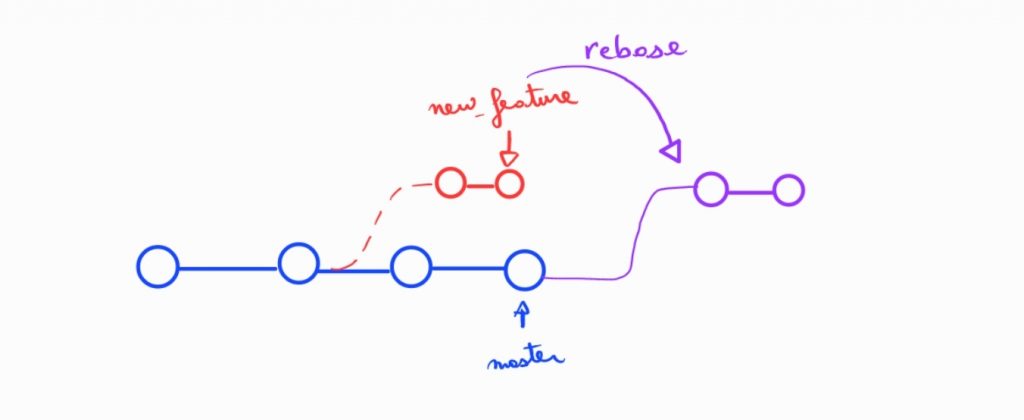 rebase
new_feature
master